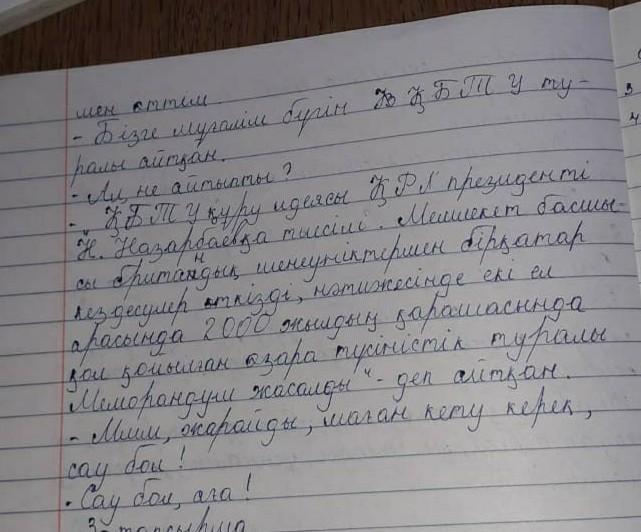 мен өттім.
- Бізге мұғалім бүгін ҚБТУ ту-
ралы айтқан.
- Ал, не айтыпты?
- "ҚБТУ құру идеясы ҚР президенті
Н. Назарбаевқа тиесілі. Мемлекет басшы-
сы британдық шенеуніктермен бірқатар
кездесулер өткізді, нәтижесінде екі ел
арасында 2000 жылдың қарашасында
қол қойылған өзара түсіністік туралы
Меморандум жасалды" - деп айтқан.
- Ммм, жарайды, маған кету керек,
сау бол!
- Сау бол, аға!
3-тапсырма